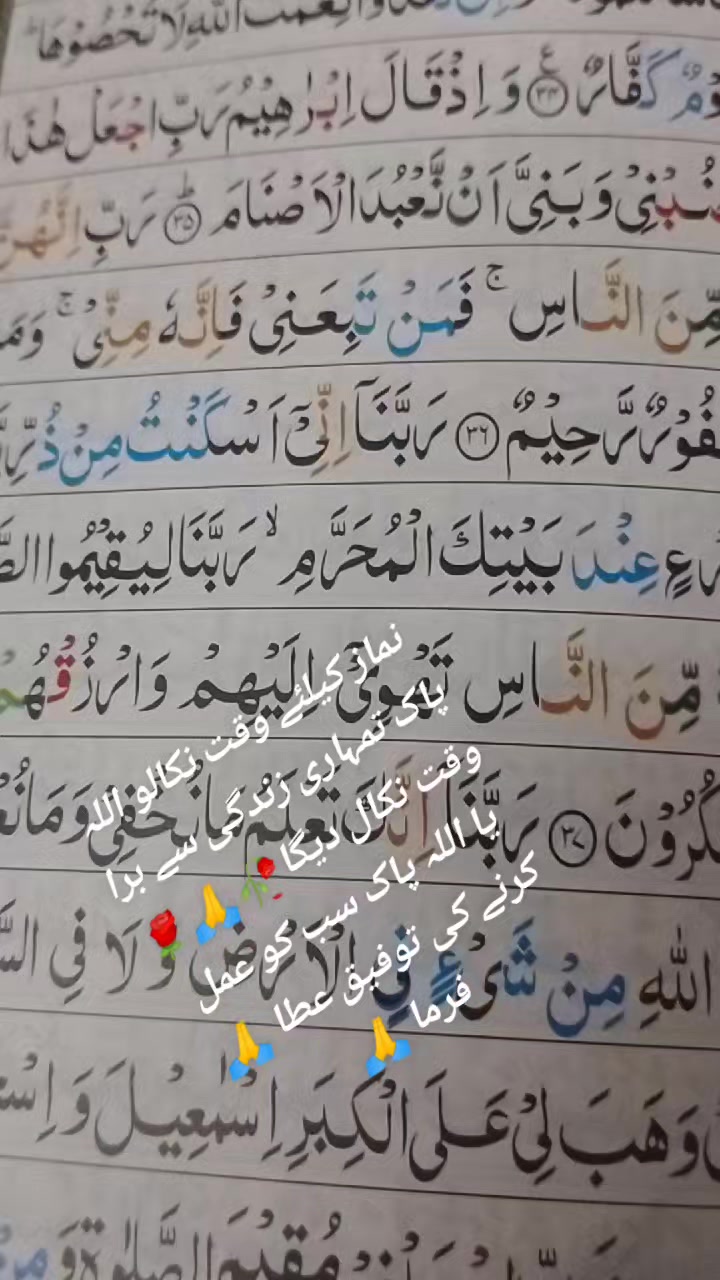 اللّٰهِ لَا تُحْصُوْهَا
كَفَّارٌ ۝۳۴ وَ اِذْ قَالَ اِبْرٰهِيْمُ رَبِّ اجْعَلْ هٰذَا
وَ بَنِيَّ اَنْ نَّعْبُدَ الْاَصْنَامَ ۝۳۵ رَبِّ اِنَّهُنَّ
مِّنَ النَّاسِ ۚ فَمَنْ تَبِعَنِيْ فَاِنَّهٗ مِنِّيْ ۚ
رَّحِيْمٌ ۝۳۶ رَبَّنَاۤ اِنِّيْۤ اَسْكَنْتُ مِنْ
عِنْدَ بَيْتِكَ الْمُحَرَّمِ ۙ رَبَّنَا لِيُقِيْمُوا
مِّنَ النَّاسِ تَهْوِيْۤ اِلَيْهِمْ وَارْزُقْهُمْ
۝۳۷ رَبَّنَاۤ اِنَّكَ تَعْلَمُ مَا نُخْفِيْ وَ مَا
اللّٰهِ مِنْ شَيْءٍ فِي الْاَرْضِ وَ لَا فِي
وَهَبَ لِيْ عَلَى الْكِبَرِ اِسْمٰعِيْلَ وَ
مُقِيْمَ الصَّلٰوةِ وَ
نماز کیلئے وقت نکالو اللہ
پاک تمہاری زندگی سے برا
وقت نکال دیگا 🥀🙏🌹
یا اللہ پاک سب کو عمل
کرنے کی توفیق عطا 🙏
فرما 🙏